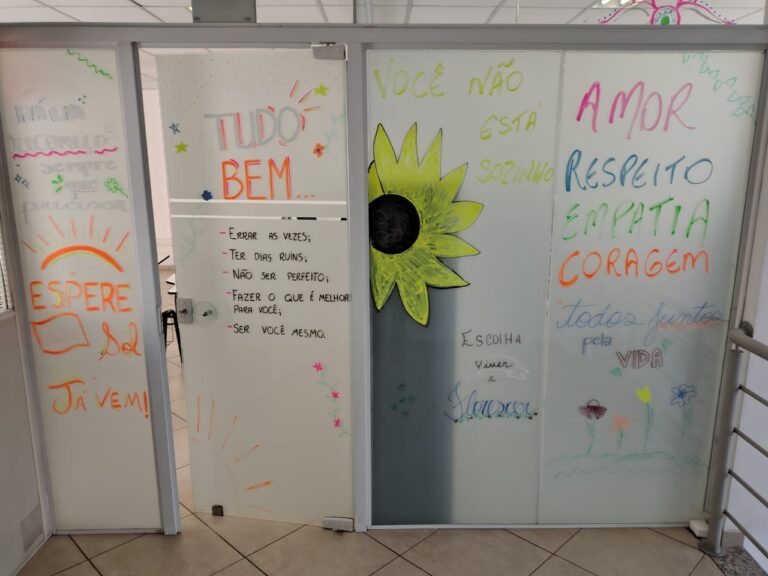 INICIA
RECOMECE
sempre
que
precisar
ESPERE
Sol
JÁ VEM!
TUDO
BEM...
- ERRAR AS VEZES;
- TER DIAS RUINS;
- NÃO SER PERFEITO;
- FAZER O QUE É MELHOR
PARA VOCÊ;
- SER VOCÊ MESMO.
VOCÊ NÃO
ESTÁ
SOZINHO
ESCOLHA
Viver
e
Florescer
AMOR
RESPEITO
EMPATIA
CORAGEM
todos juntos
pela
VIDA